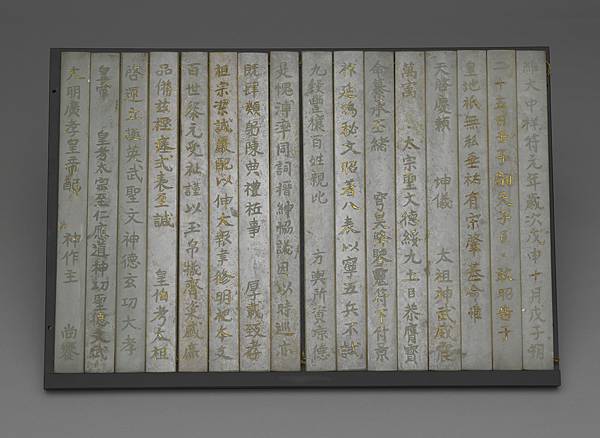 維大中祥符元年歲次戊申十月戊子朔
二十五日壬子嗣天子臣 敢昭告于
皇地祇無私垂祐有宋肇基命惟
天啓慶賴 坤儀 太祖神武威震
萬寓 太宗聖文德綏九土臣恭膺寶
命纂承丕緒 穹昊降祥靈符下付景
祚延鴻秘文昭著八表以寧五兵不試
九穀豐穰百姓親比 方輿所資涼德
是愧溥率同詞搢紳協議因以時巡亦
既肆類躬陳典禮祗事 厚載致孝
祖宗潔誠嚴配以伸大報聿修明祀本支
百世黎元受祉謹以玉帛犧齊粢盛庶
品備茲禋瘞式表至誠 皇伯考太祖
啓運立極英武聖文神德玄功大孝
皇帝 皇考太宗至仁應道神功聖德文武
大明廣孝皇帝配 神作主 尚饗